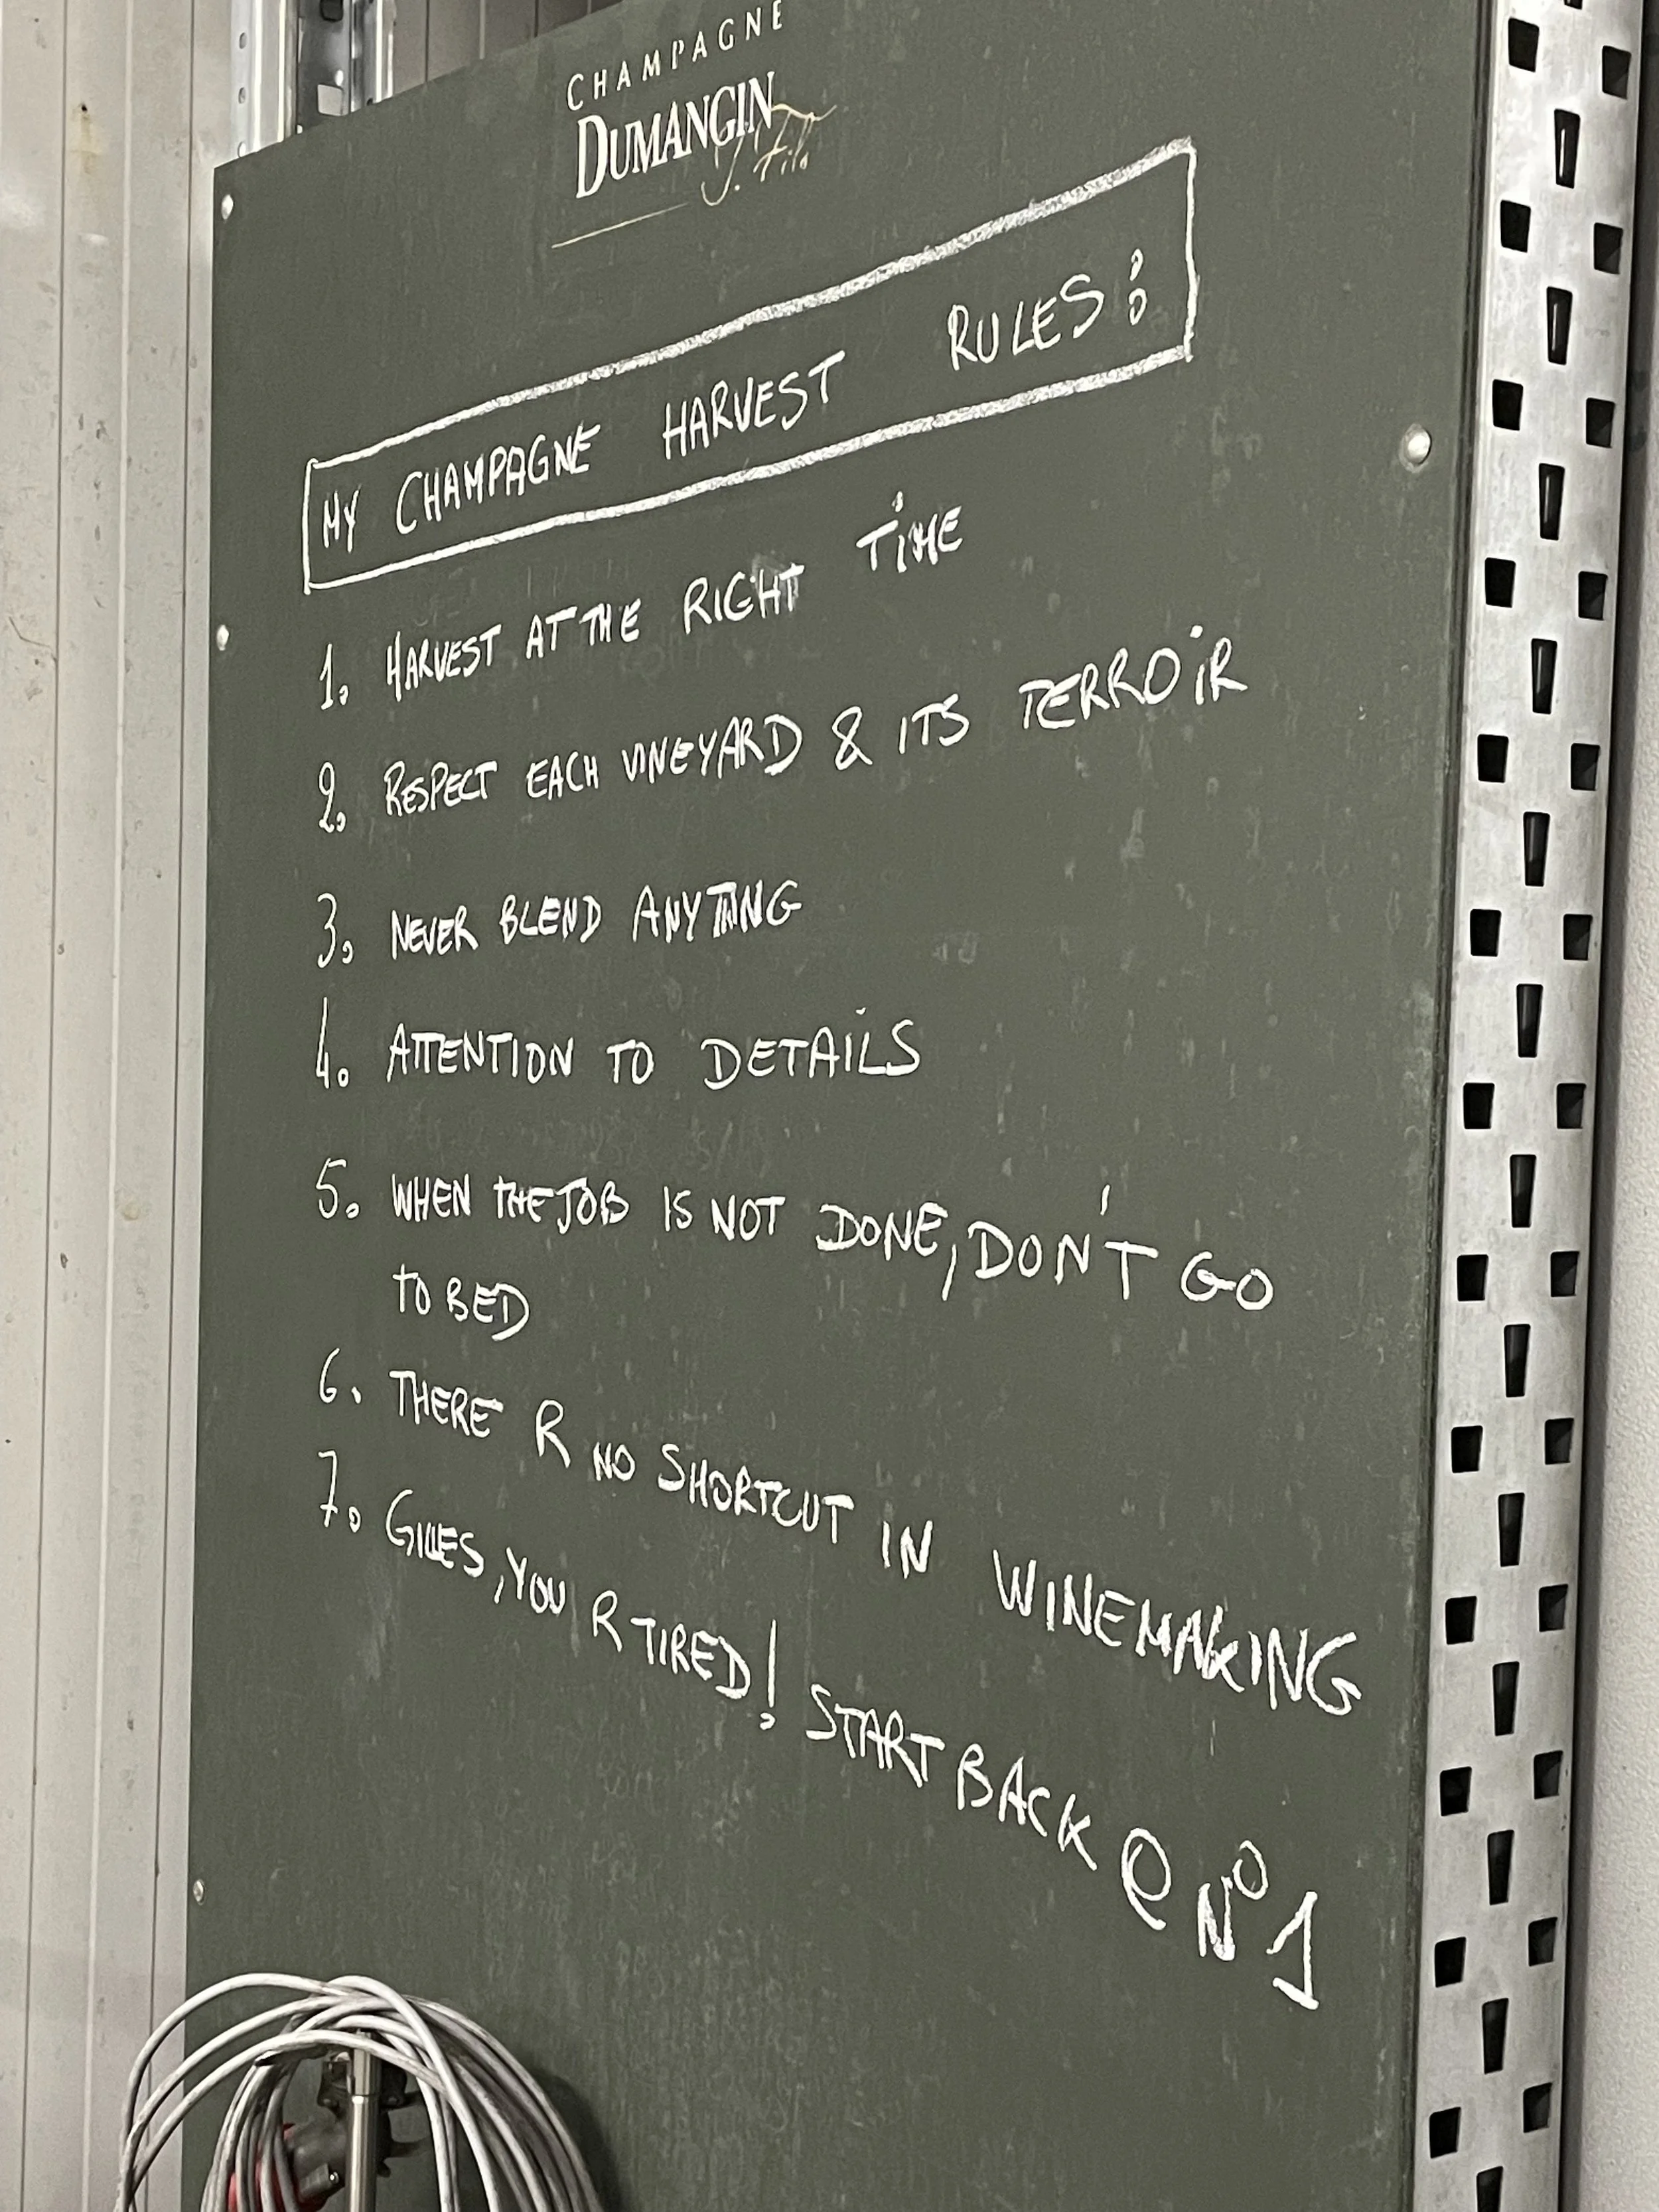 CHAMPAGNE
DUMANGIN
J. Fils
MY CHAMPAGNE HARVEST RULES:
1. HARVEST AT THE RIGHT TIME
2. RESPECT EACH VINEYARD & ITS TERROIR
3. NEVER BLEND ANYTHING
4. ATTENTION TO DETAILS
5. WHEN THE JOB IS NOT DONE, DON'T GO
TO BED
6. THERE R NO SHORTCUT IN WINEMAKING
7. GILLES, YOU R TIRED! START BACK @ N° 1